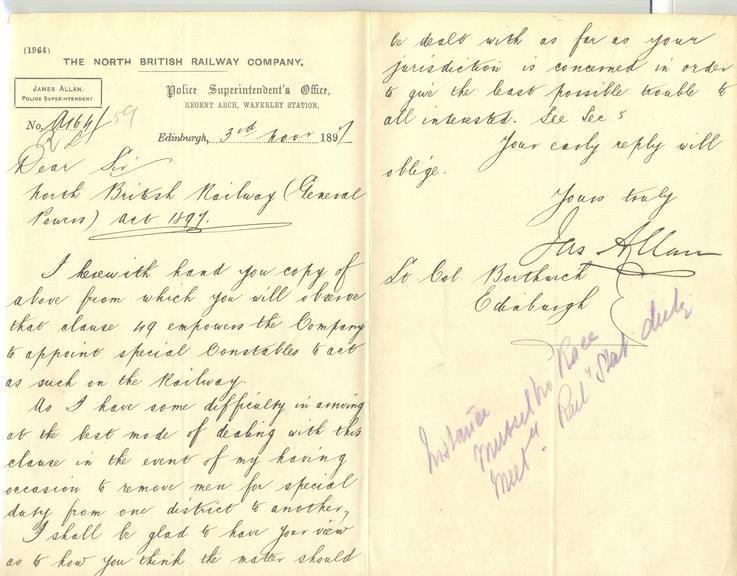 (1964)
THE NORTH BRITISH RAILWAY COMPANY.
JAMES ALLAN.
POLICE SUPERINTENDENT.
Police Superintendent's Office,
REGENT ARCH, WAVERLEY STATION,
No. 59
Edinburgh, 3rd Novr 1897
Dear Sir
North British Railway (General
Powers) Act 1897.
I herewith hand you copy of
above from which you will observe
that clause 49 empowers the Company
to appoint special Constables to act
as such on the Railway.
As I have some difficulty in arriving
at the best mode of dealing with this
clause in the event of my having
occasion to remove men for special
duty from one district to another,
I shall be glad to have your view
as to how you think the matter should
be dealt with as far as your
jurisdiction is concerned in order
to give the least possible trouble to
all interested. See Sec 5
Your early reply will
oblige.
Yours truly
Jas Allan
Lt. Col. Borthwick
Edinburgh
Instance
Musselbro Race
Meetg. Railg Stat duty